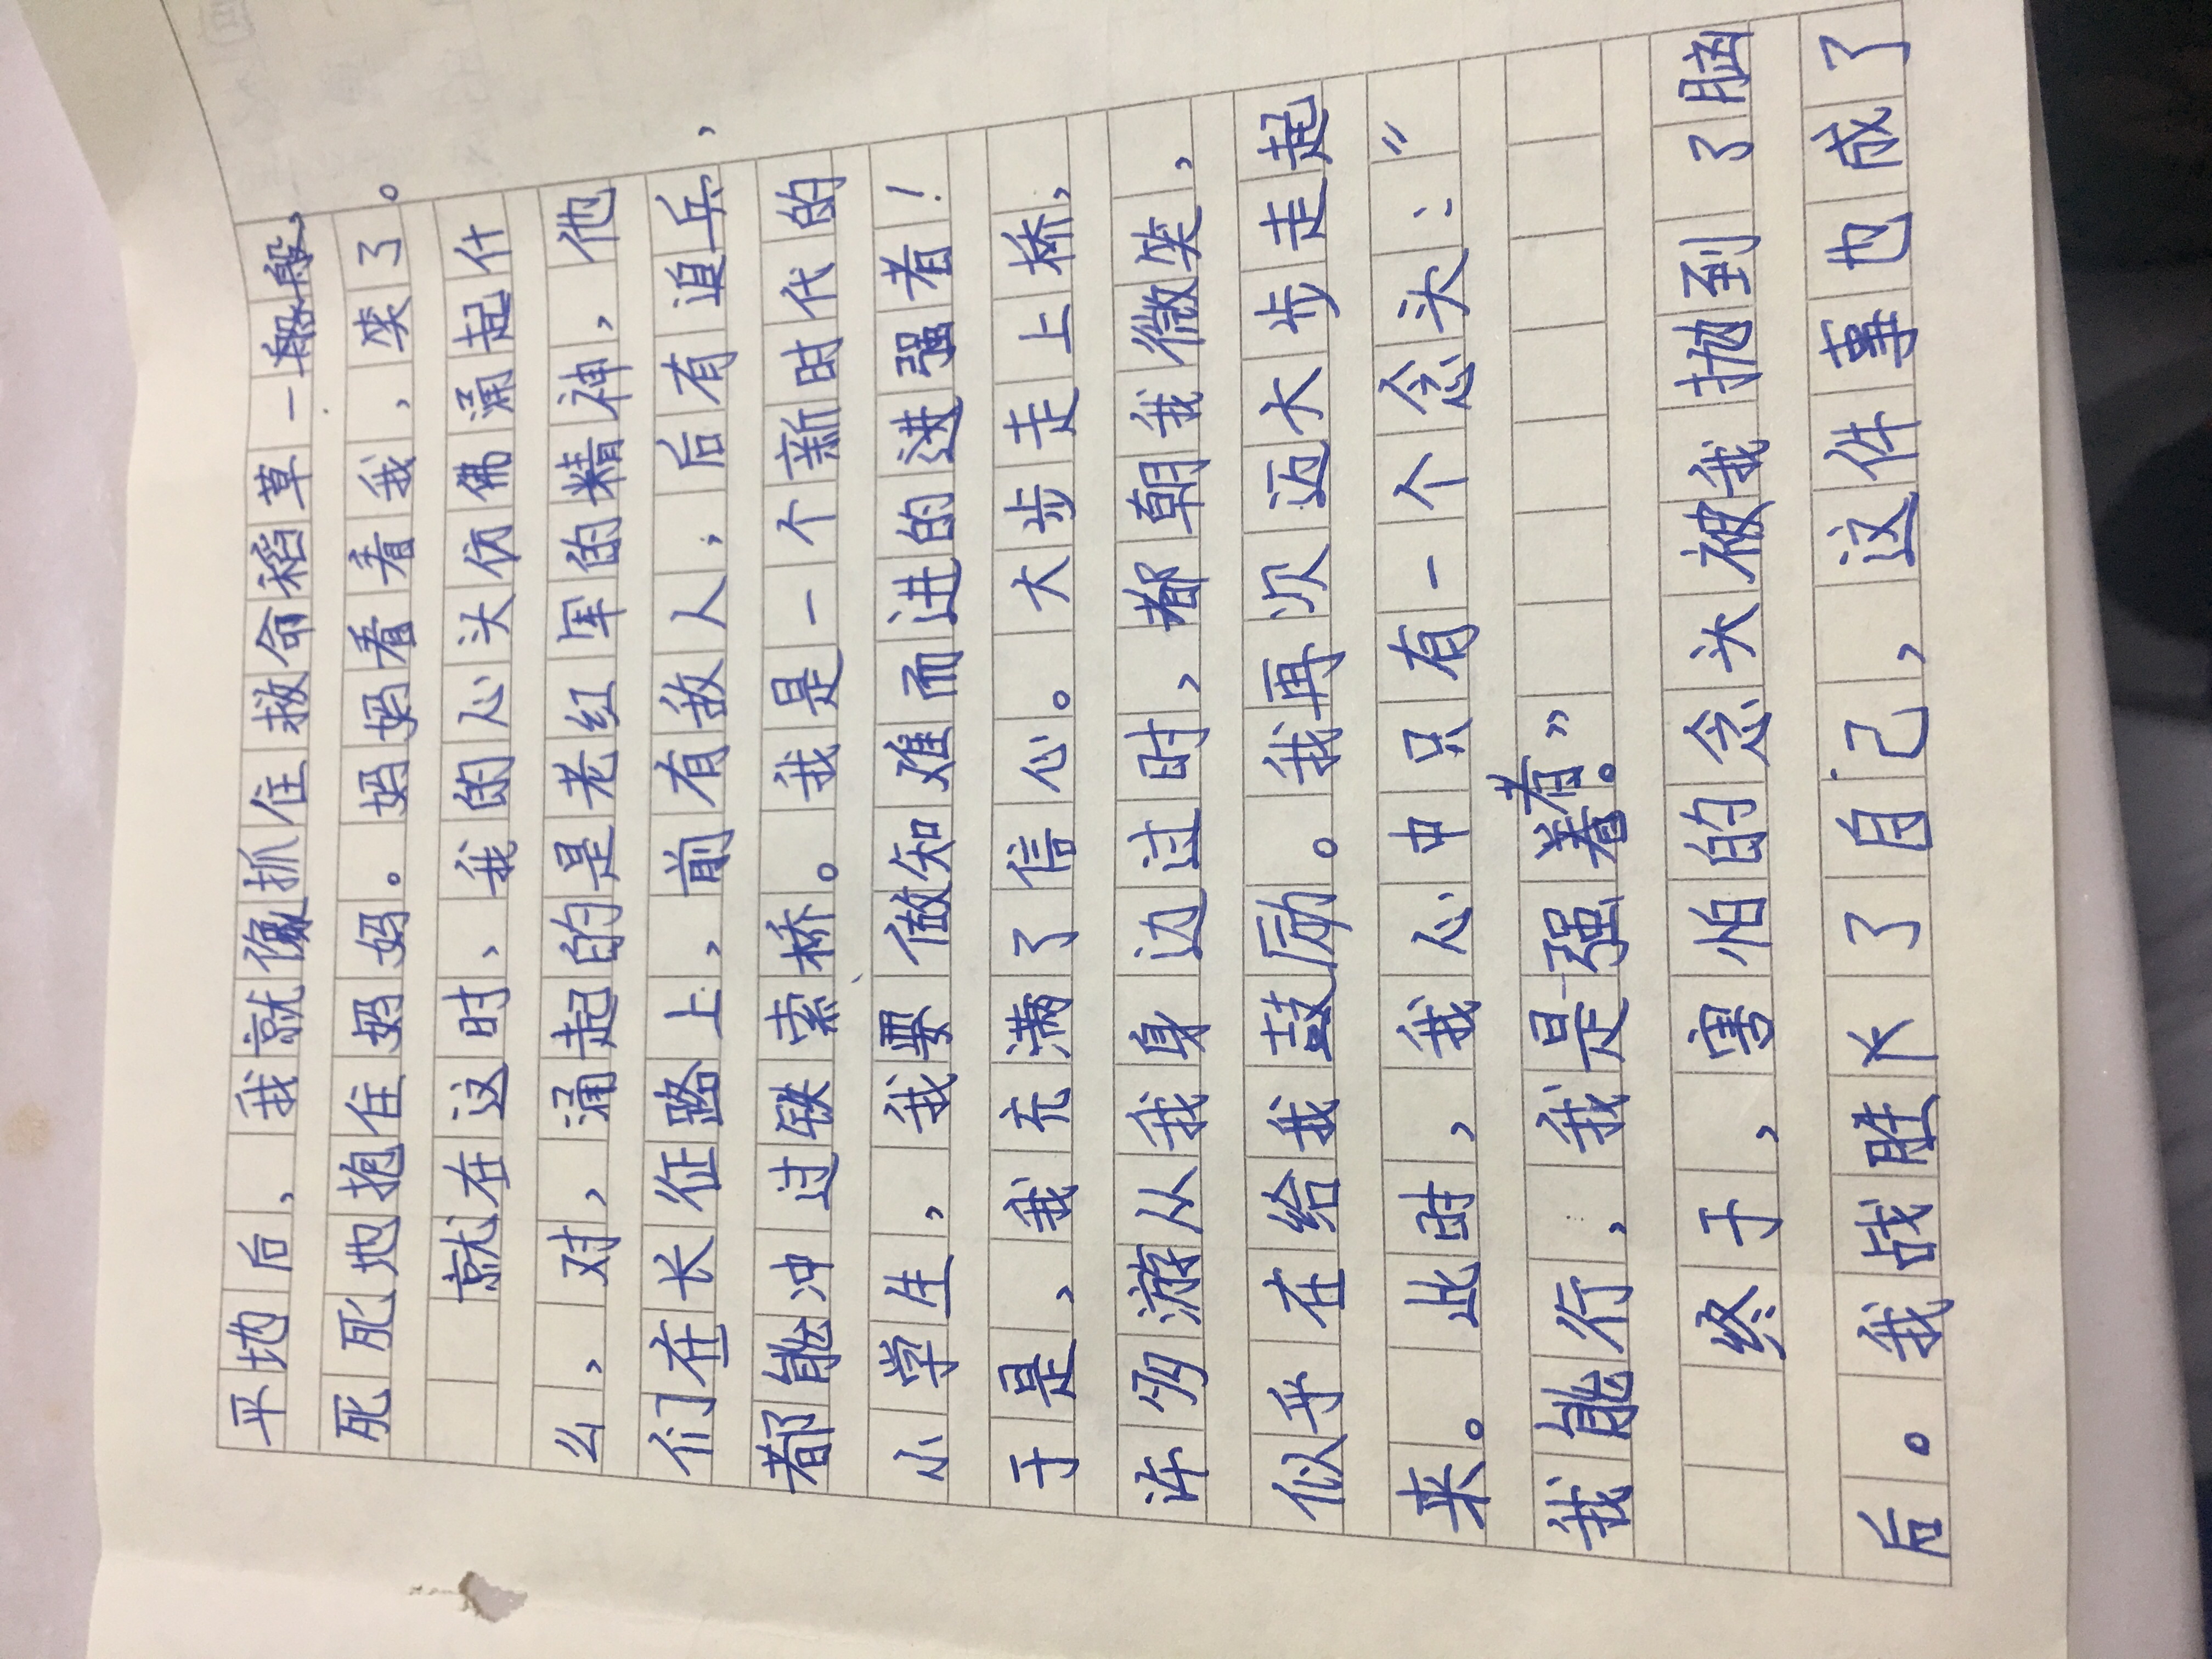 平地后，我就像抓住救命稻草一般般，
死死地抱住妈妈。妈妈看看我，笑了。
就在这时，我的心头仿佛涌起什
么，对，涌起的是老红军的精神，他
们在长征路上，前有敌人，后有追兵，
都能冲过铁索桥。我是一个新时代的
小学生，我要做知难而进的进强者！
于是，我充满了信心。大步走上桥，
许多游从我身边过时，都朝我微笑，
似乎在给我鼓励。我再次迈大步走起
来。此时，我心中只有一个念头：“
我能行，我是强者。”
终于，害怕的念头被我抛到了脑
后。我战胜了自己，这件事也成了